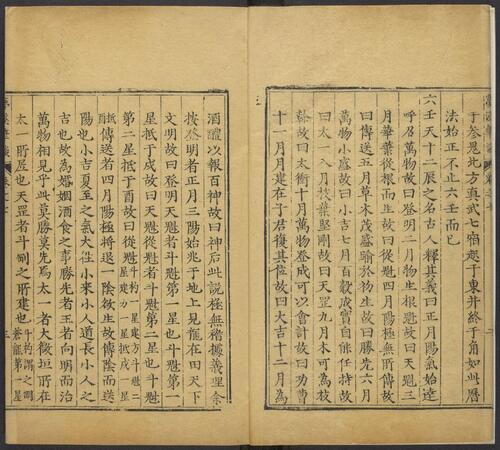 于參是北方真武七宿起于東井終于角如此曆
法始正不止六壬而已
六壬天十二辰之名古人釋其義曰正月陽氣始達
呼召萬物故曰登明二月物生根魁故曰天魁三
月華葉從根而生故曰從魁四月陽極無所傳故
曰傳送五月草木茂盛踰於物生故曰勝先六月
萬物小盛故曰小吉七月百穀成實自能任持故
曰太一八月枝葉堅剛故曰天罡九月木可為枝
榦故曰太衝十月萬物登成可以會計故曰功曹
十一月月建在子君復其位故曰大吉十二月為
酒醴以報百神故曰神后此說極無稽據義理余
按登明者正月三陽始兆于地上見龍在田天下
文明故曰登明天魁者斗魁第一星也斗魁第一
星抵于戌故曰天魁從魁者斗魁第二星也斗魁
第二星抵于酉故曰從魁斗杓一星建方斗魁二星建方一星抵戌一星
抵酉傳送者四月陽極將退一陰欲生故傳陰而送
陽也小吉夏至之氣大往小來小人道長小人之
吉也故為婚姻酒食之事勝先者王者向明而治
萬物相見乎此莫勝莫先焉太一者太微垣所在
太一所居也天罡者斗剛之所建也斗杓謂之剛蒼龍第一星